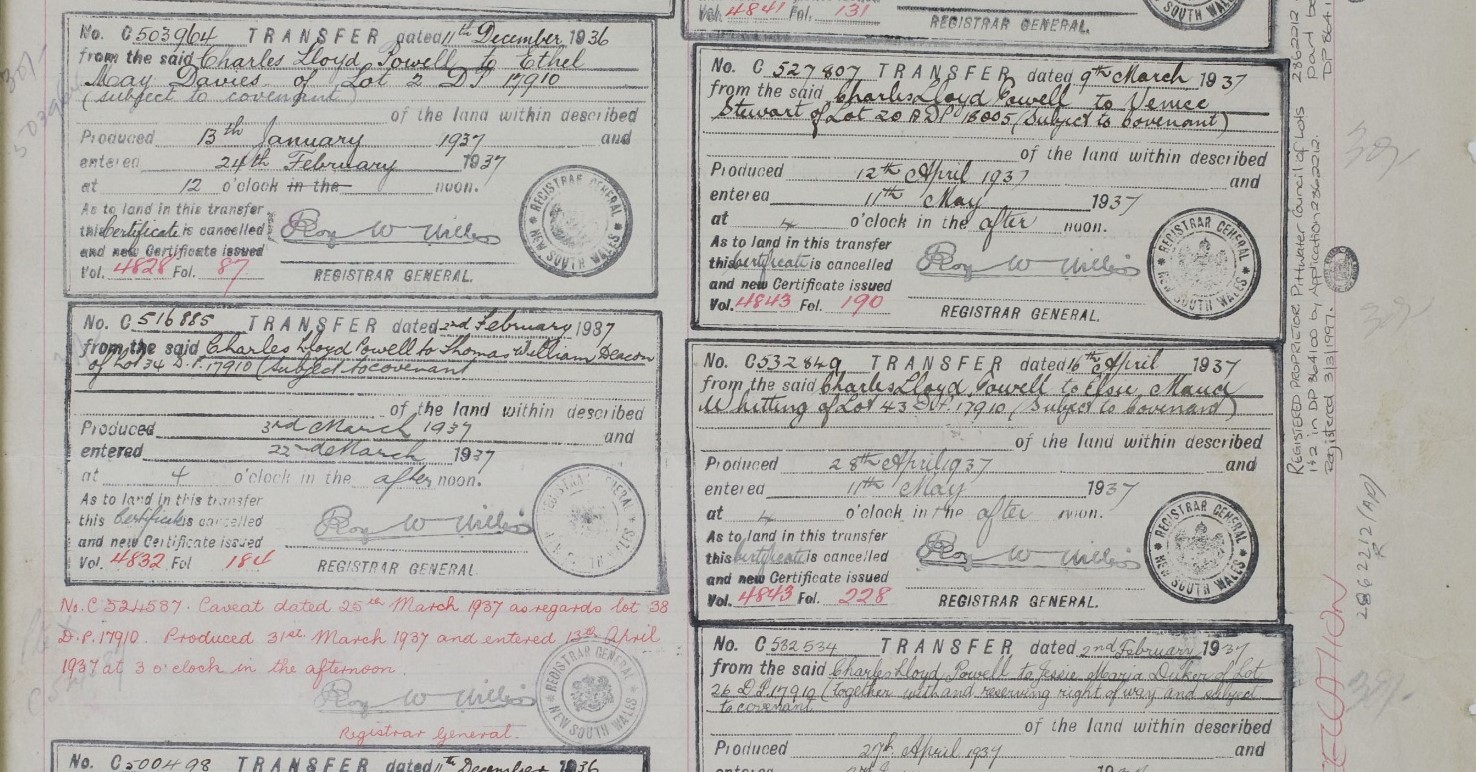 No. C503964 TRANSFER dated 11th December 1936
from the said Charles Lloyd Powell to Ethel
May Davies of Lot 2 DP 17910
(subject to covenant)
of the land within described
Produced 13th January 1937 and
entered 24th February 1937
at 12 o'clock in the noon.
As to land in this transfer
this Certificate is cancelled
and new Certificate issued
Vol. 4828 Fol. 87
Roy W Willis
REGISTRAR GENERAL.
REGISTRAR GENERAL NEW SOUTH WALES
No. C516885 TRANSFER dated 2nd February 1937
from the said Charles Lloyd Powell to Thomas William Deacon
of Lot 34 D.P. 17910 (subject to covenant
of the land within described
Produced 3rd March 1937 and
entered 22nd March 1937
at 4 o'clock in the after noon.
As to land in this transfer
this Certificate is cancelled
and new Certificate issued
Vol. 4832 Fol
Roy W Willis
REGISTRAR GENERAL.
No. C524587. Caveat dated 25th March 1937 as regards lot 38
D.P. 17910. Produced 31st March 1937 and entered 13th April
1937 at 3 o'clock in the afternoon.
Roy W Willis
Registrar General.
REGISTRAR GENERAL NEW SOUTH WALES
No. C500498 TRANSFER dated 11th December 1936
Vol. 4841 Fol. 131
REGISTRAR GENERAL.
SOUTH WALES
No. C 527807 TRANSFER dated 9th March 1937
from the said Charles Lloyd Powell to Venice
Stewart of Lot 20 DP 18005 (Subject to Covenant)
of the land within described
Produced 12th April 1937 and
entered 11th May 1937
at 4 o'clock in the after noon.
As to land in this transfer
this Certificate is cancelled
and new Certificate issued
Vol. 4843 Fol. 190
Roy W Willis
REGISTRAR GENERAL.
REGISTRAR GENERAL NEW SOUTH WALES
No. C532849 TRANSFER dated 16th April 1937
from the said Charles Lloyd Powell to Elsie Maud
Whitting of Lot 43 D.P. 17910 (Subject to Covenant)
of the land within described
Produced 28th April 1937 and
entered 11th May 1937
at 4 o'clock in the after noon.
As to land in this transfer
this Certificate is cancelled
and new Certificate issued
Vol. 4843 Fol. 228
Roy W Willis
REGISTRAR GENERAL.
REGISTRAR GENERAL NEW SOUTH WALES
No. C532534 TRANSFER dated 2nd February 1937
from the said Charles Lloyd Powell to Jessie Duker of Lot
26 D.P. 17910 (together with and reserving right of way and subject
to covenant
of the land within described
Produced 27th April 1937 and
REGISTERED PROPRIETOR Pittwater Council of Lots
1+2 in DP 864100 by Application 2862212.
Registered 3/3/1997.
2862212 (AP)
R